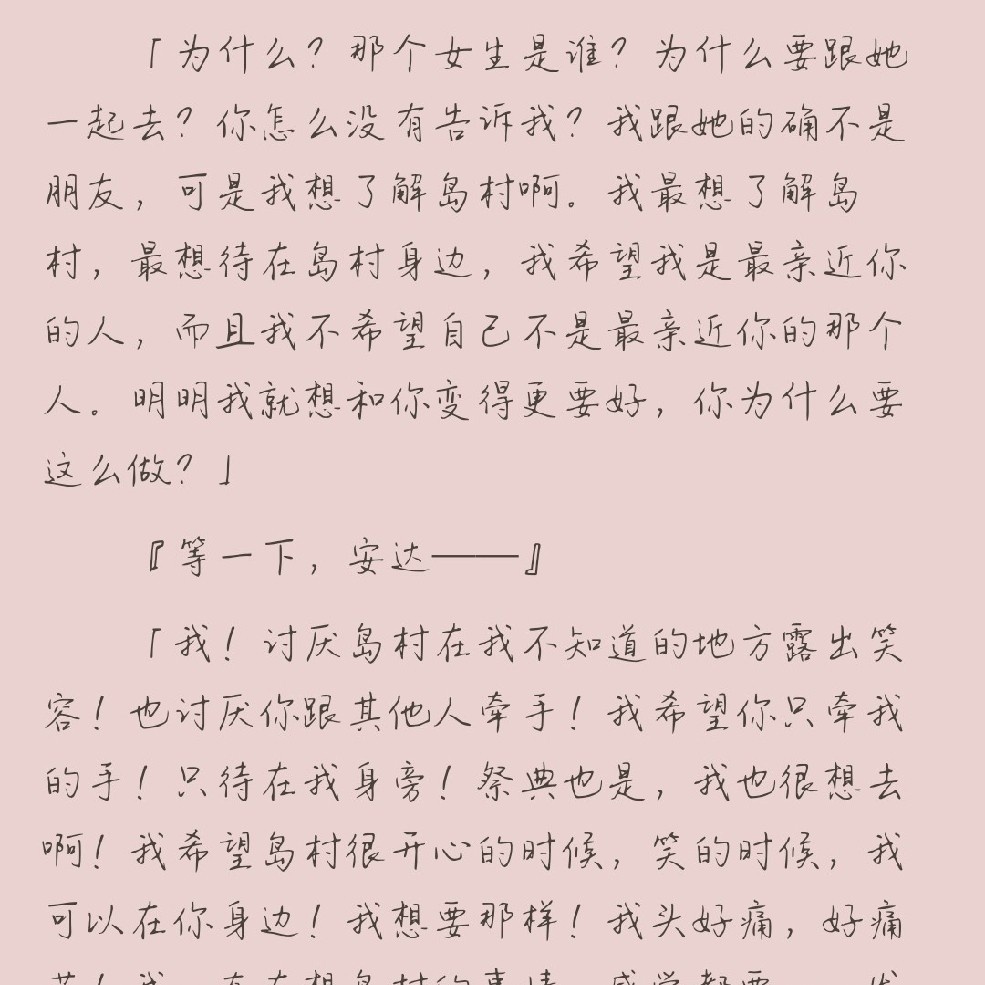 「为什么？那个女生是谁？为什么要跟她
一起去？你怎么没有告诉我？我跟她的确不是
朋友，可是我想了解岛村啊。我最想了解岛
村，最想待在岛村身边，我希望我是最亲近你
的人，而且我不希望自己不是最亲近你的那个
人。明明我就想和你变得更要好，你为什么要
这么做？」
『等一下，安达——』
「我！讨厌岛村在我不知道的地方露出笑
容！也讨厌你跟其他人牵手！我希望你只牵我
的手！只待在我身旁！祭典也是，我也很想去
啊！我希望岛村很开心的时候，笑的时候，我
可以在你身边！我想要那样！我头好痛，好痛